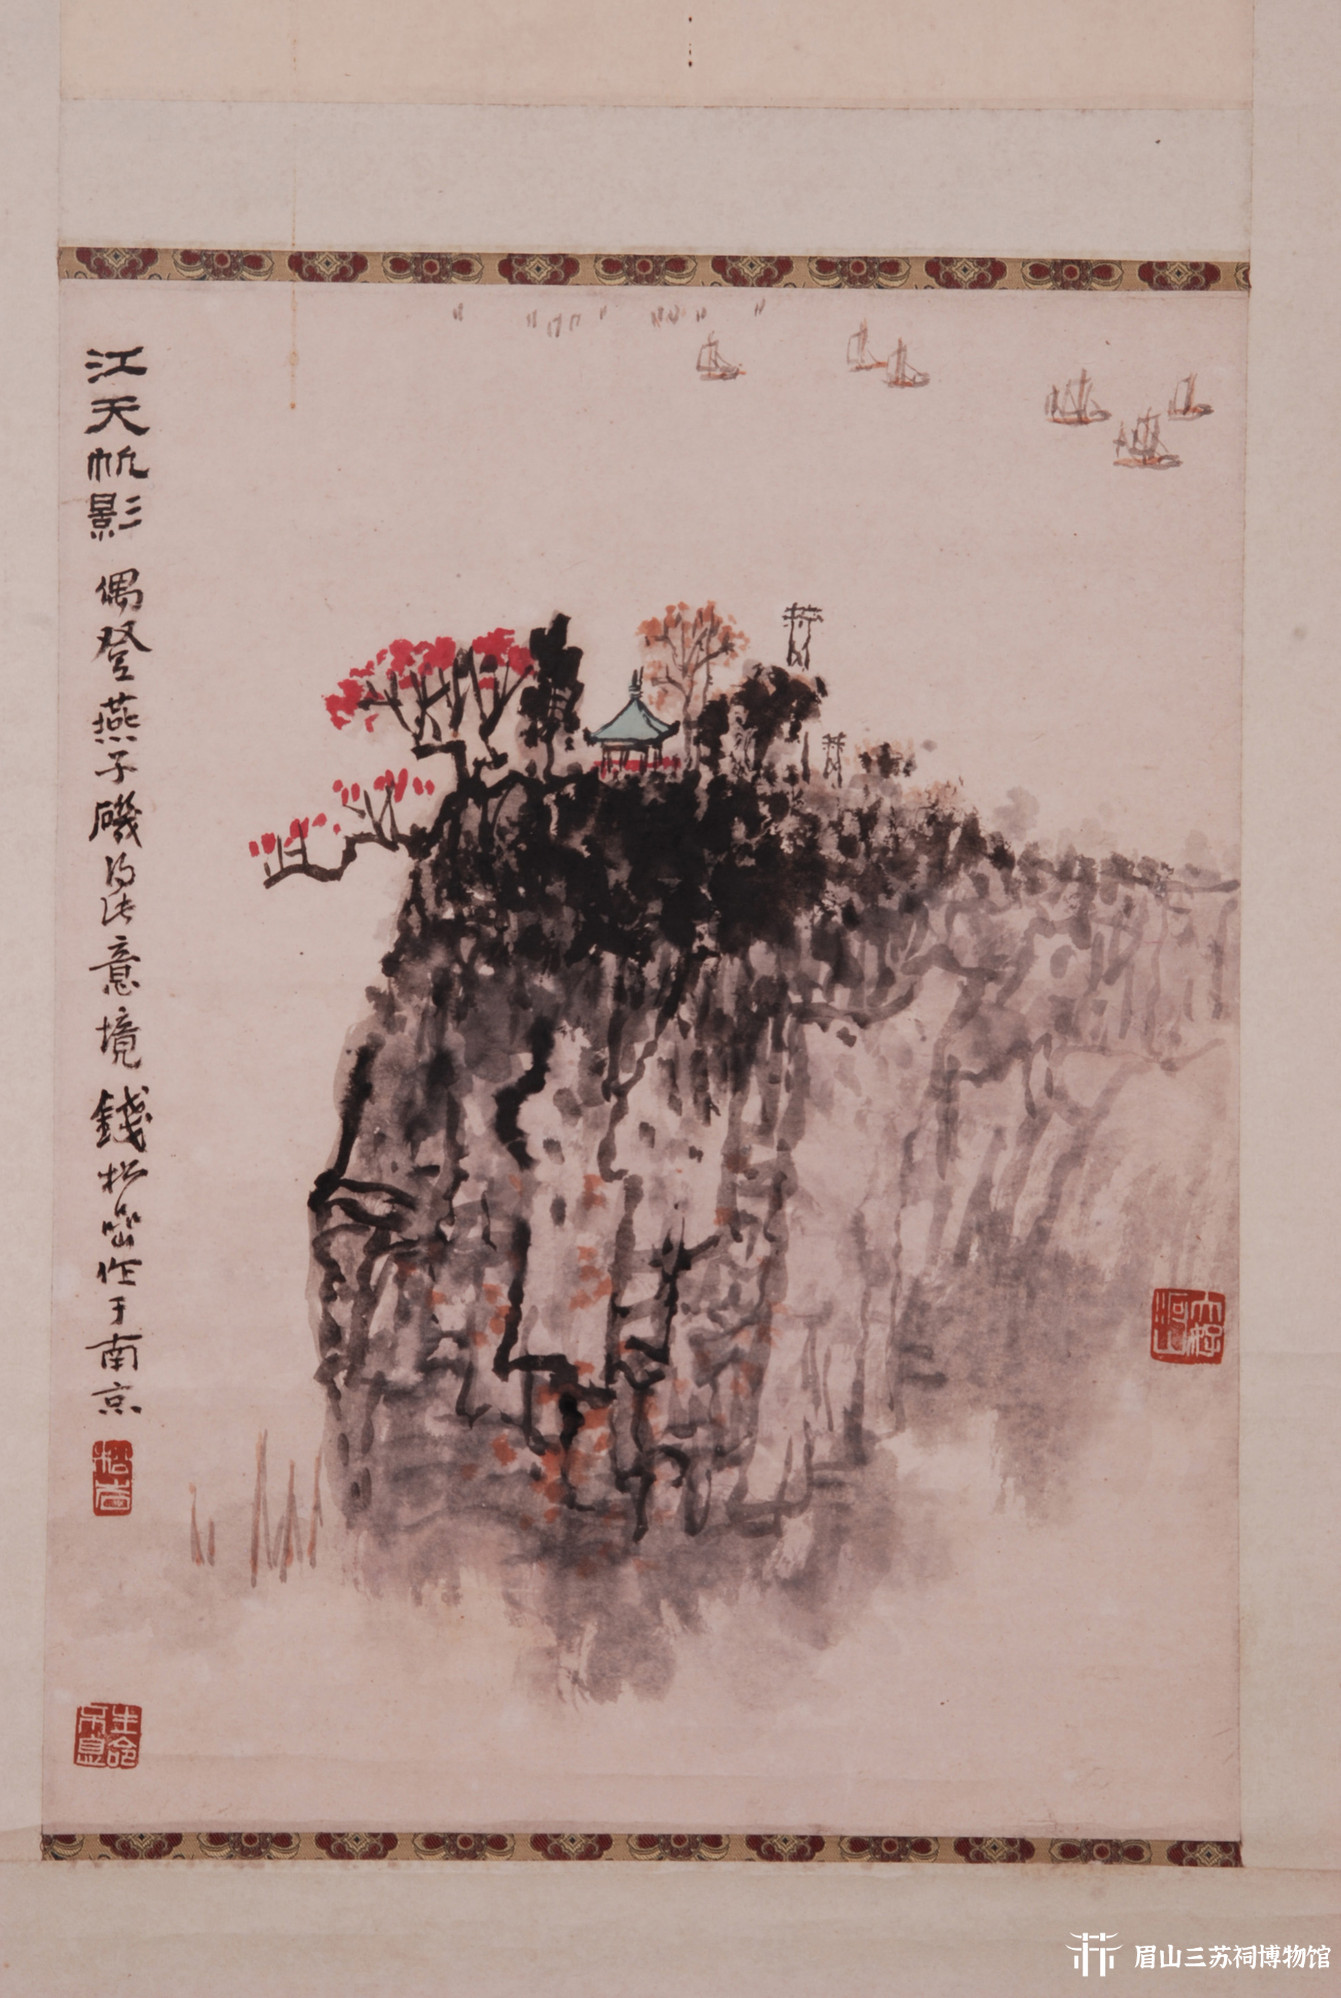 江天帆影 偶登燕子磯得此意境 錢松喦作于南京
松喦
大好河山
生命不息
眉山三苏祠博物馆